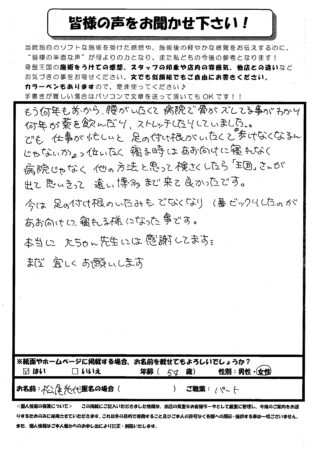 皆様の声をお聞かせ下さい！
当院独自のソフトな施術を受けた感想や、施術後の軽やかな感覚をお伝えするのに、
"皆様の率直な声" が何よりの力となり、また私どもの今後の参考となります！
骨盤王国の施術をうけての感想、スタッフの印象や店内の雰囲気、他店との違いなど
お気づきの事をお寄せください。文でも似顔絵でもご自由にお書きください。
カラーペンもありますので、是非使ってください♪
手書きが難しい場合はパソコンで文章を送って頂いてもOKです！！
もう何年も前から、腰がいたくて病院で骨がズレてる事がわかり
何年か薬を飲んだり、ストレッチしたりしていました。
でも 仕事が忙しいと 足の付け根がいたくて 歩けなくなるん
じゃないか？って位いたく 寝る時はあお向けに寝れなく
病院じゃなく 他の方法と思って検さくしたら「王国」さんが
出て 思いきって 遠い博多まで来て良かったです。
今は 足の付け根のいたみもでなくなり 1番ビックリしたのが
あお向けに 寝れる様になった事です。
本当に 大ちゃん先生には感謝してます
まだ 宜しく お願いします
※紙面やホームページに掲載する場合、お名前を載せてもよろしいでしょうか？
☑ はい □ いいえ 年齢（ 歳） 性別：男性・女性
お名前： 匿名の場合（ ） ご職業：パート